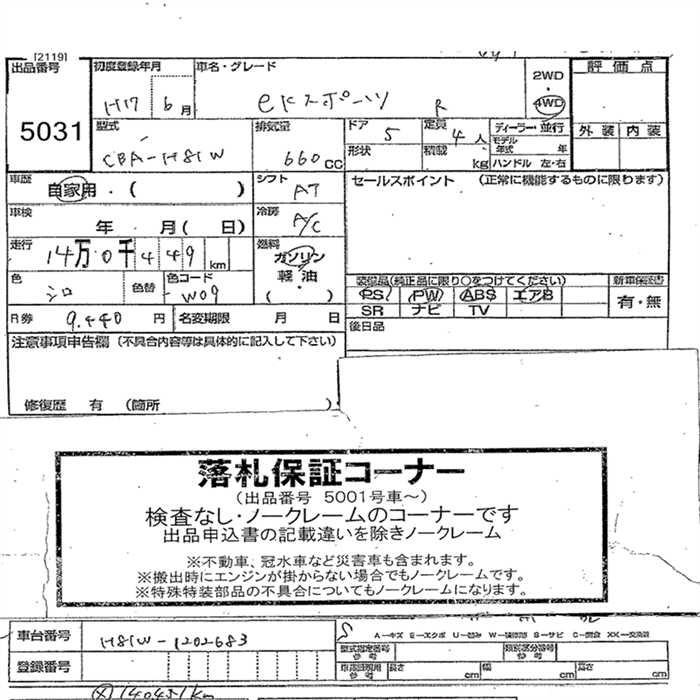 [2119]
出品番号 初度登録年月 車名・グレード 2WD 評価点
H17 6月 eKスポーツ R 4WD
5031 型式 排気量 ドア 5 定員 4人 ディーラー・並行 外装 内装
CBA-H81W 660cc 形状 積載 kg モデル年式 年 ハンドル 左・右
車歴 自家用・( ) シフト AT セールスポイント (正常に機能するものに限ります)
車検 年 月( 日) 冷房 A/C
走行 14万0千449km 燃料 ガソリン・軽油 ( )
色 シロ 色替 色コード W09 装備品(純正品に限り○をつけてください) 新車保証書
PS PW ABS エアB 有・無
SR ナビ TV
R券 9.440円 名変期限 月 日 後日品
注意事項申告欄 (不具合内容等は具体的に記入して下さい)
修復歴 有 (箇所 )
落札保証コーナー
(出品番号 5001号車~)
検査なし・ノークレームのコーナーです
出品申込書の記載違いを除きノークレーム
※不動車、冠水車など災害車も含まれます。
※搬出時にエンジンが掛からない場合でもノークレームです。
※特殊特装部品の不具合についてもノークレームになります。
車台番号 H81W-1202683 A-キズ E-エクボ U-凹み W-補修跡 S-サビ C-腐食 XX-交換済
型式指定番号 参考 類別区分番号 参考
登録番号 車両証明用 参考 長さ cm 幅 cm 高さ cm
140451km